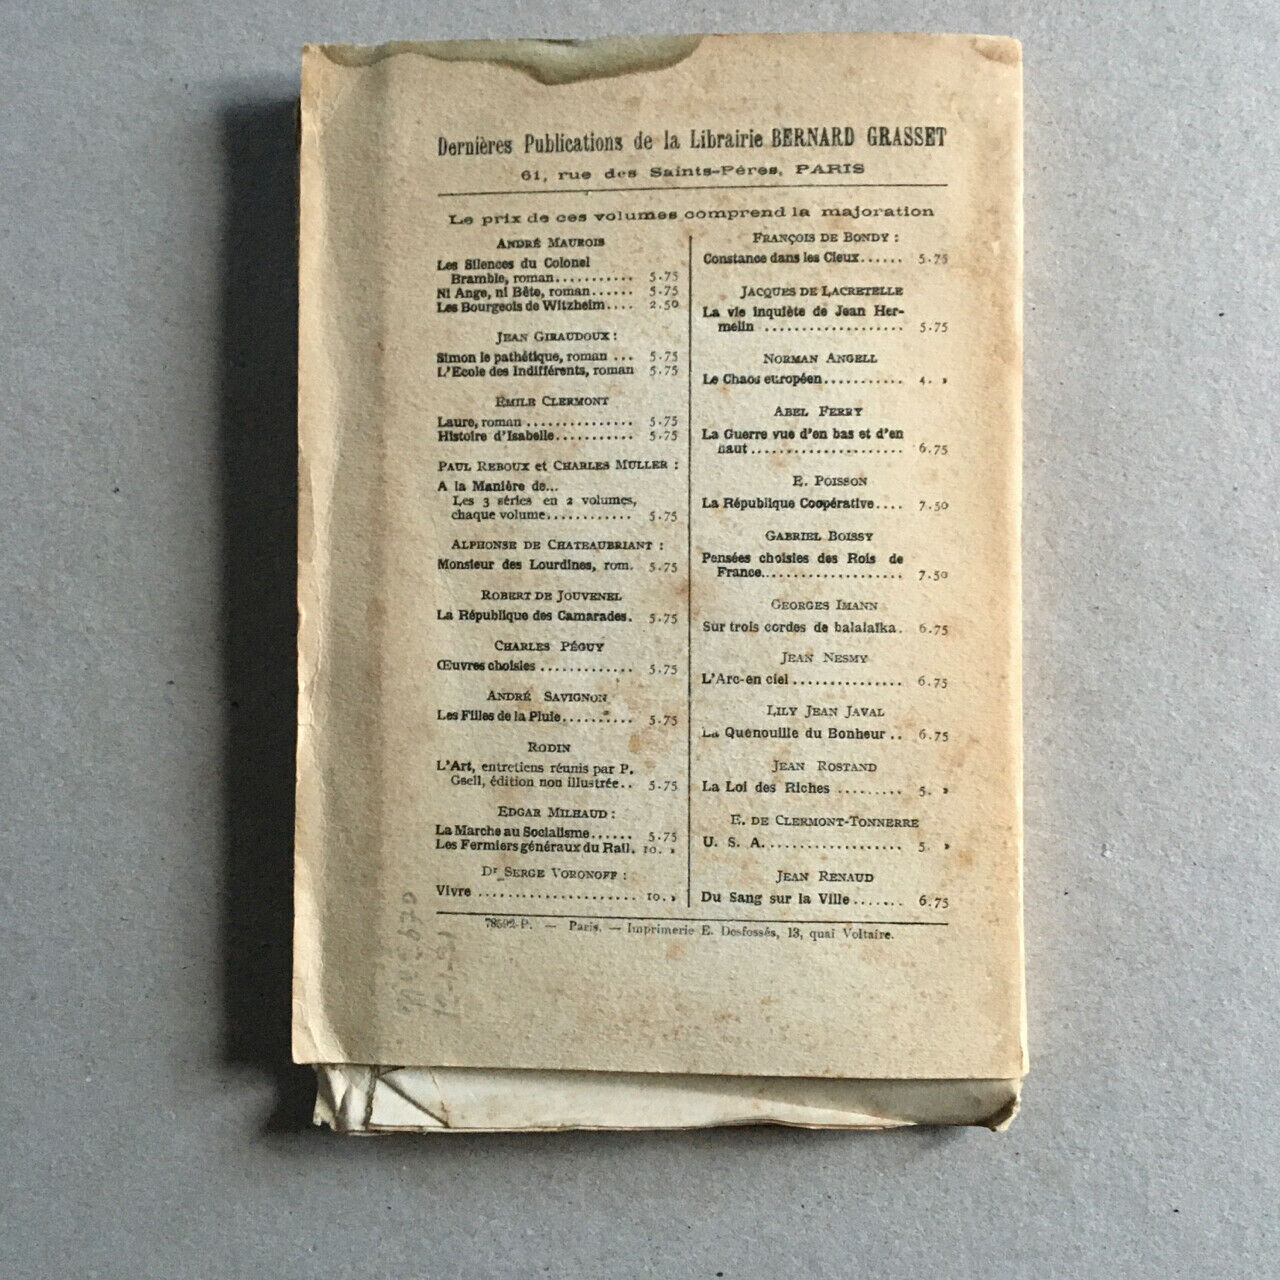 Dernières Publications de la Librairie BERNARD GRASSET
61, rue des Saints-Péres, PARIS
Le prix de ces volumes comprend la majoration
ANDRÉ MAUROIS
Les Silences du Colonel
Bramble, roman........... 5.75
Ni Ange, ni Bête, roman...... 5.75
Les Bourgeois de Witzheim.... 2.50
JEAN GIRAUDOUX :
Simon le pathétique, roman ... 5.75
L'Ecole des Indifférents, roman 5.75
EMILE CLERMONT
Laure, roman ............... 5.75
Histoire d'Isabelle........... 5.75
PAUL REBOUX et CHARLES MULLER :
A la Manière de...
Les 3 séries en 2 volumes,
chaque volume............ 5.75
ALPHONSE DE CHATEAUBRIANT :
Monsieur des Lourdines, rom. 5.75
ROBERT DE JOUVENEL
La République des Camarades. 5.75
CHARLES PÉGUY
Œuvres choisies ............. 5.75
ANDRÉ SAVIGNON
Les Filles de la Pluie.......... 5.75
RODIN
L'Art, entretiens réunis par P.
Gsell, édition non illustrée.. 5.75
EDGAR MILHAUD :
La Marche au Socialisme...... 5.75
Les Fermiers généraux du Rail. 10. »
Dr SERGE VORONOFF :
Vivre ...................... 10. »
FRANÇOIS DE BONDY :
Constance dans les Cieux...... 5.75
JACQUES DE LACRETELLE
La vie inquiète de Jean Her-
melin ................... 5.75
NORMAN ANGELL
Le Chaos européen........... 4. »
ABEL FERRY
La Guerre vue d'en bas et d'en
haut..................... 6.75
E. POISSON
La République Coopérative.... 7.50
GABRIEL BOISSY
Pensées choisies des Rois de
France................... 7.50
GEORGES IMANN
Sur trois cordes de balalaïka. 6.75
JEAN NESMY
L'Arc-en ciel ............... 6.75
LILY JEAN JAVAL
La Quenouille du Bonheur .. 6.75
JEAN ROSTAND
La Loi des Riches ......... 5. »
E. DE CLERMONT-TONNERRE
U. S. A................... 5. »
JEAN RENAUD
Du Sang sur la Ville....... 6.75
78592-P. — Paris. — Imprimerie E. Desfossés, 13, quai Voltaire.